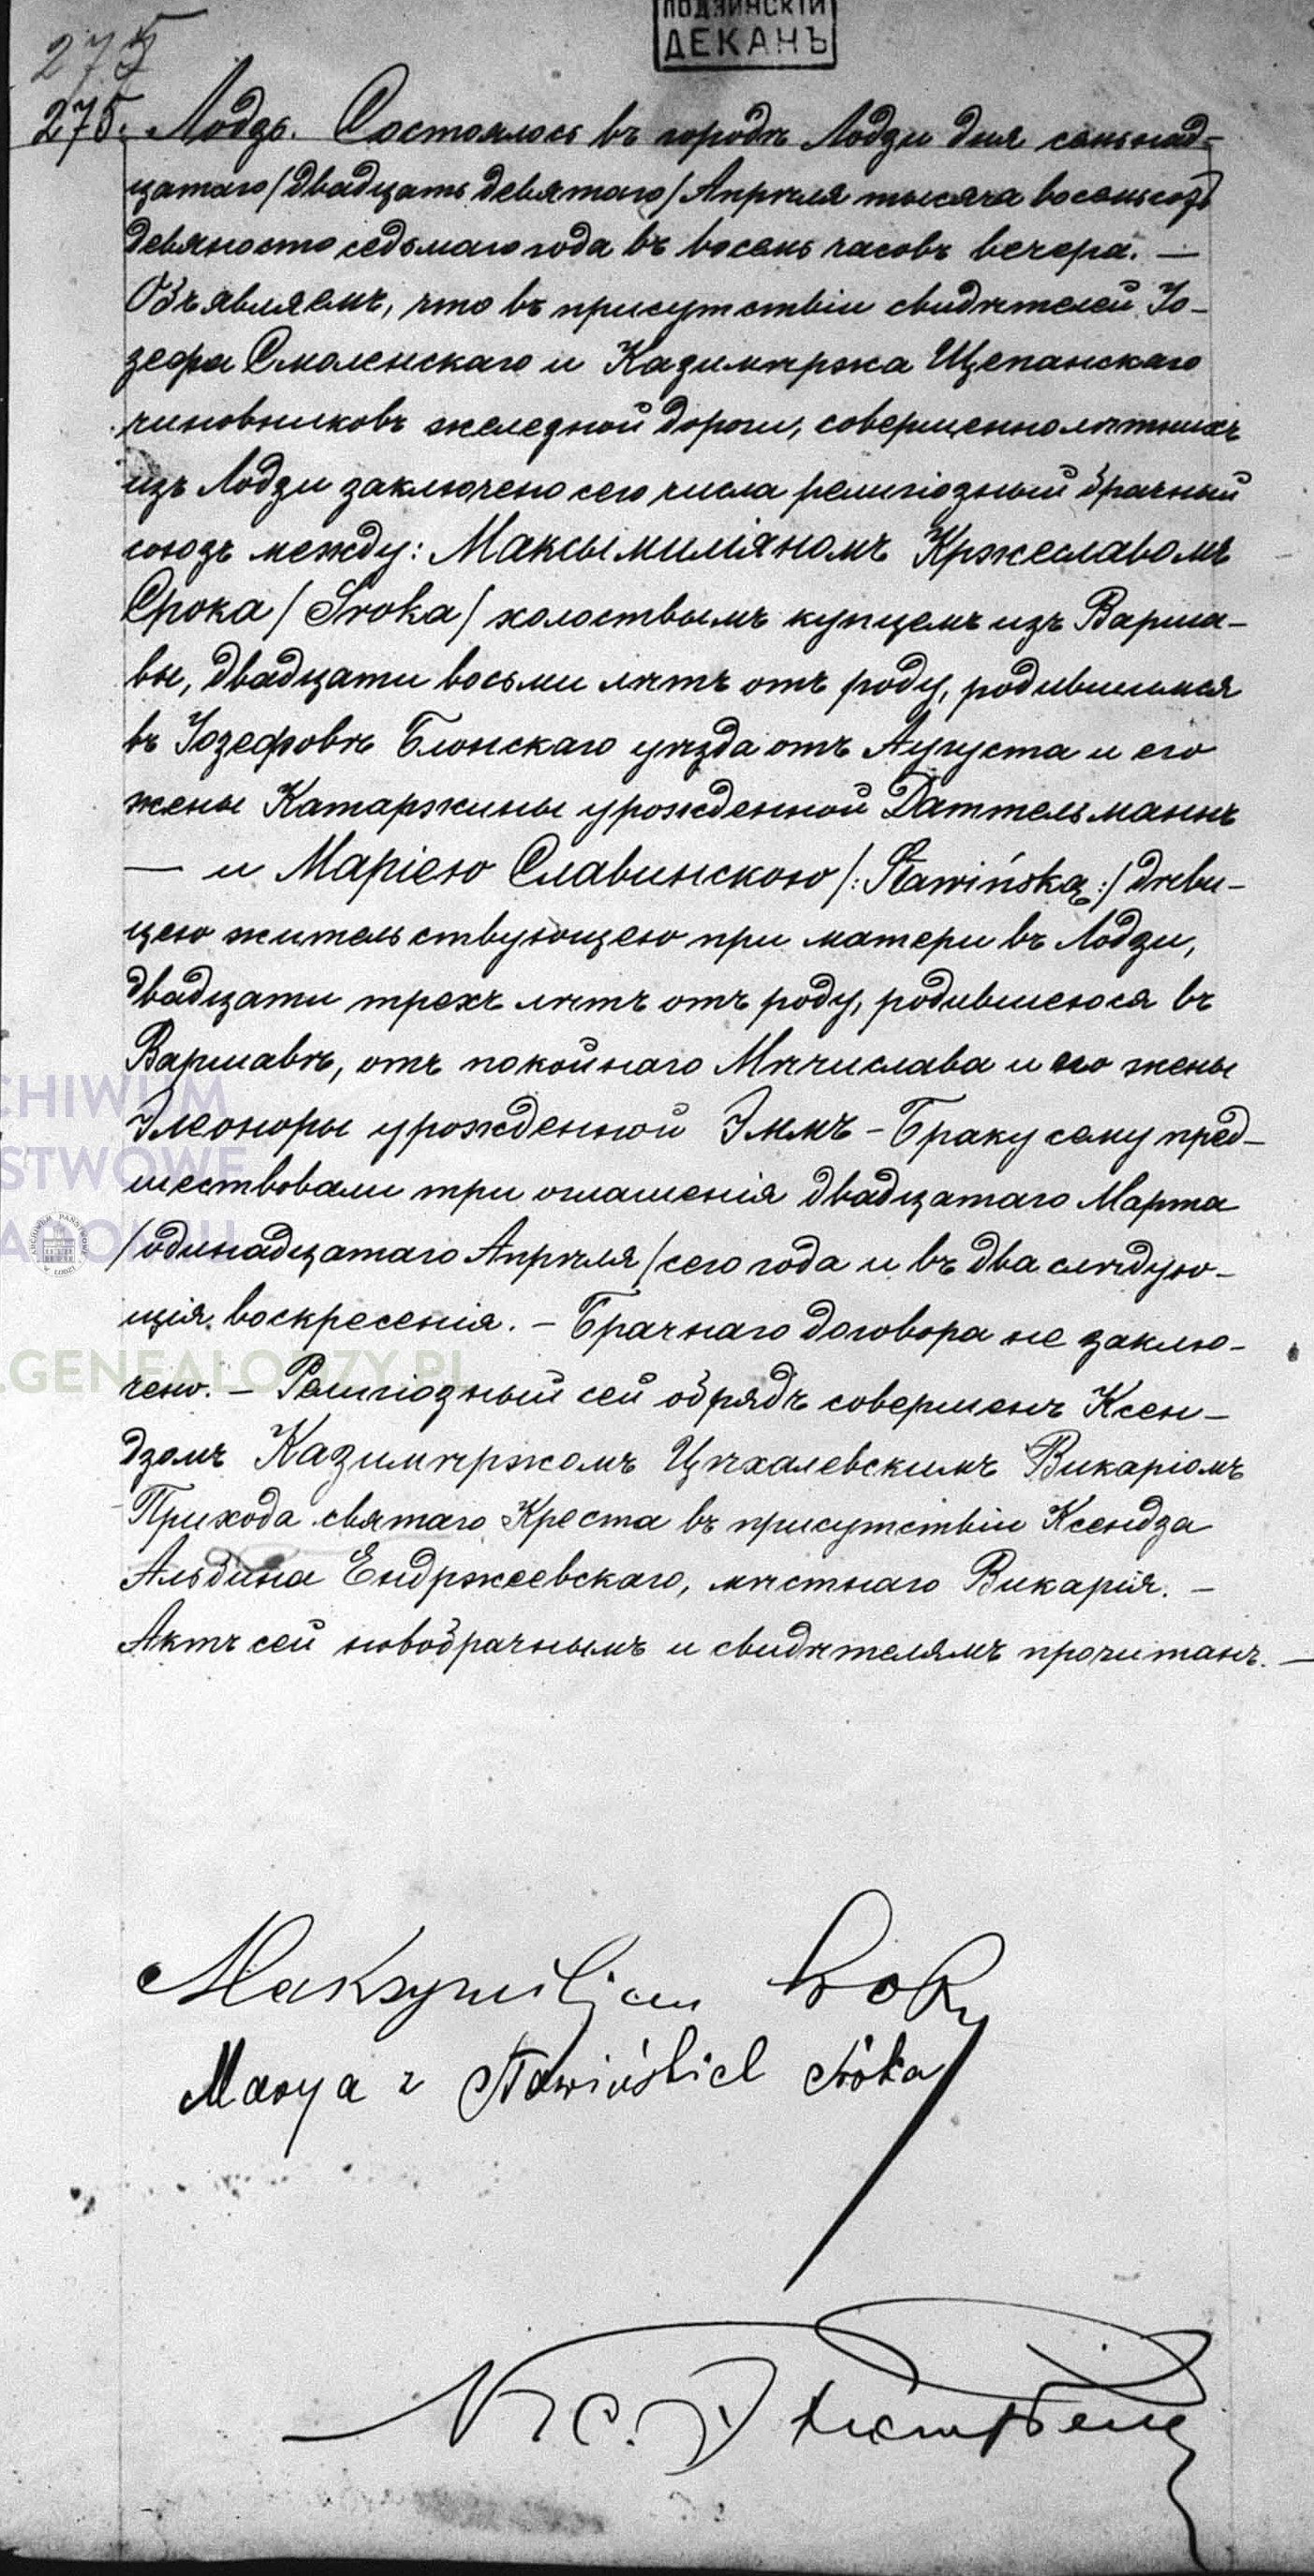 ЛОДЗИНСКІЙ
ДЕКАНЪ
275
275. Лодзь. Состоялось въ городѣ Лодзи дня семьнад-
цатаго /двадцать девятаго/ Апрѣля тысяча восемьсотъ
девяносто седьмаго года въ восемь часовъ вечера. —
Объявляемъ, что въ присутствіи свидѣтелей Іо-
зефа Смоленскаго и Казимѣржа Щепанскаго
чиновниковъ железной дороги, совершеннолѣтнихъ
изъ Лодзи заключено сего числа религіозный брачный
союзъ между: Максымиліяномъ Кржеславомъ
Срока / Sroka / холоствымъ купцемъ изъ Варша-
вы, двадцати восьми лѣтъ отъ роду, родившимся
въ Іозефовѣ Блонскаго уѣзда отъ Августа и его
жены Катаржины урожденной Даттельманнъ
— и Маріею Славинскою /: Sławińską :/ дѣви-
цею жительствующею при матери въ Лодзи,
двадцати трехъ лѣтъ отъ роду, родившеюся въ
Варшавѣ, отъ покойнаго Мѣчислава и его жены
Элеоноры урожденной Эммъ - Браку сему пред-
шествовали три оглашенія двадцатаго Марта
/одинадцатаго Апрѣля/ сего года и въ два слѣдую-
щія воскресенія. - Брачнаго договора не заклю-
чено. - Религіозный сей обрядъ совершенъ Ксен-
дзомъ Казимѣржомъ Цѣхалевскимъ Викаріомъ
Прихода святаго Креста въ присутствіи Ксендза
Альбина Ендржеевскаго, мѣстнаго Викарія. -
Актъ сей новобрачнымъ и свидѣтелямъ прочитанъ. —
CHIWUM
STWOWE
ADOMIU
.GENEALODZY.PL
Maksymiljan Sroka
Marya z Sławińskich Sroka
Кс.